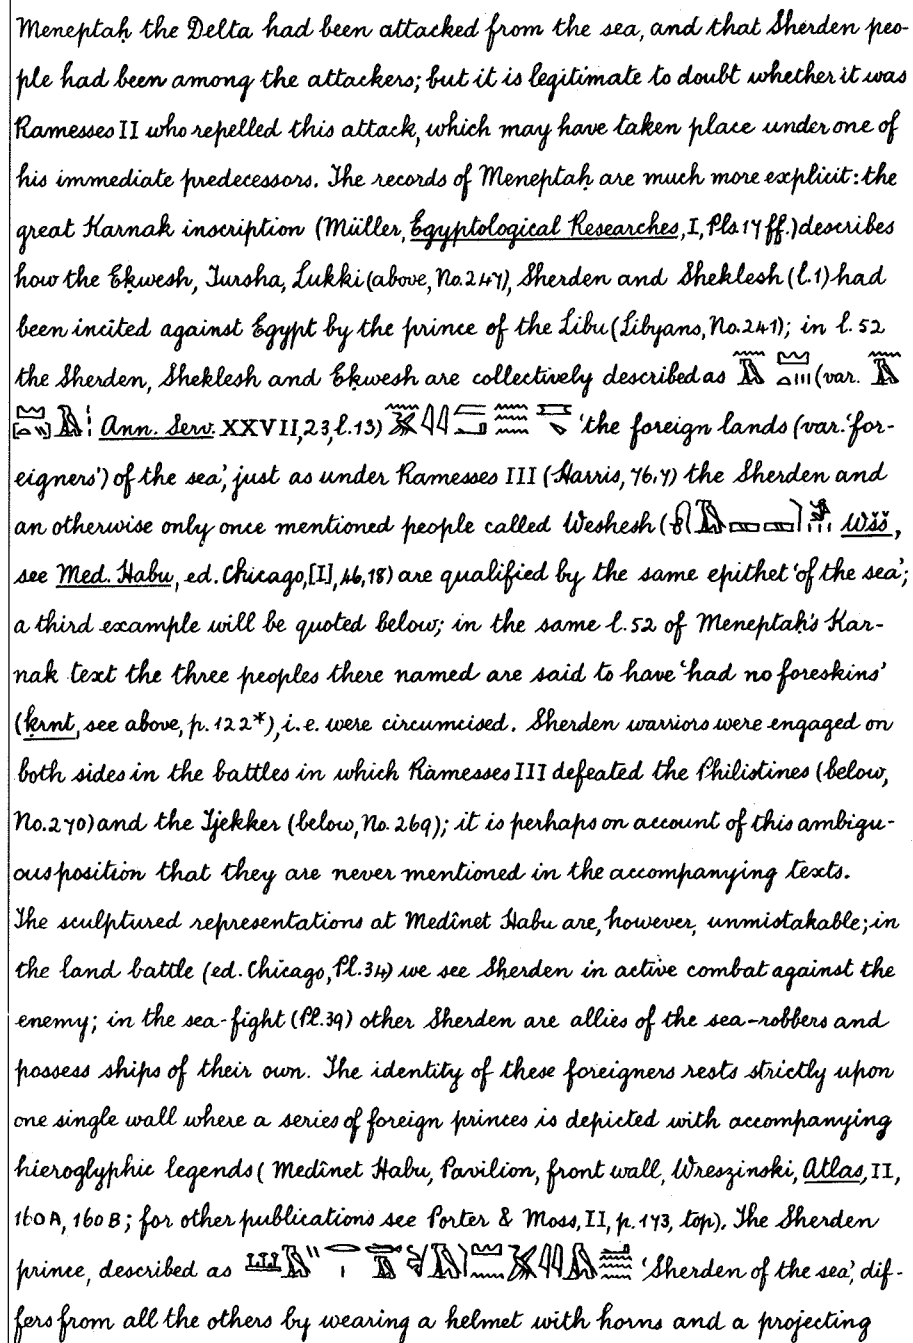 Meneptaḥ the Delta had been attacked from the sea, and that Sherden peo-
ple had been among the attackers; but it is legitimate to doubt whether it was
Ramesses II who repelled this attack, which may have taken place under one of
his immediate predecessors. The records of Meneptaḥ are much more explicit: the
great Karnak inscription (Müller, Egyptological Researches, I, Pls. 17 ff.) describes
how the Eḳwesh, Tursha, Lukki (above, No. 247), Sherden and Sheklesh (l. 1) had
been incited against Egypt by the prince of the Libu (Libyans, No. 241); in l. 52
the Sherden, Sheklesh and Eḳwesh are collectively described as (var.
Ann. Serv. XXVII, 23, l. 13) 'the foreign lands (var. 'for-
eigners') of the sea', just as under Ramesses III (Harris, 76, 7) the Sherden and
an otherwise only once mentioned people called Weshesh ( Wšš,
see Med. Habu, ed. Chicago, [I], 46, 18) are qualified by the same epithet 'of the sea';
a third example will be quoted below; in the same l. 52 of Meneptaḥ's Kar-
nak text the three peoples there named are said to have 'had no foreskins'
(ḳrnt, see above, p. 122*), i.e. were circumcised. Sherden warriors were engaged on
both sides in the battles in which Ramesses III defeated the Philistines (below,
No. 270) and the Tjekker (below, No. 269); it is perhaps on account of this ambigu-
ous position that they are never mentioned in the accompanying texts.
The sculptured representations at Medînet Habu are, however, unmistakable; in
the land battle (ed. Chicago, Pl. 34) we see Sherden in active combat against the
enemy; in the sea-fight (Pl. 39) other Sherden are allies of the sea-robbers and
possess ships of their own. The identity of these foreigners rests strictly upon
one single wall where a series of foreign princes is depicted with accompanying
hieroglyphic legends (Medînet Habu, Pavilion, front wall, Wreszinski, Atlas, II,
160A, 160B; for other publications see Porter & Moss, II, p. 173, top). The Sherden
prince, described as 'Sherden of the sea', dif-
fers from all the others by wearing a helmet with horns and a projecting